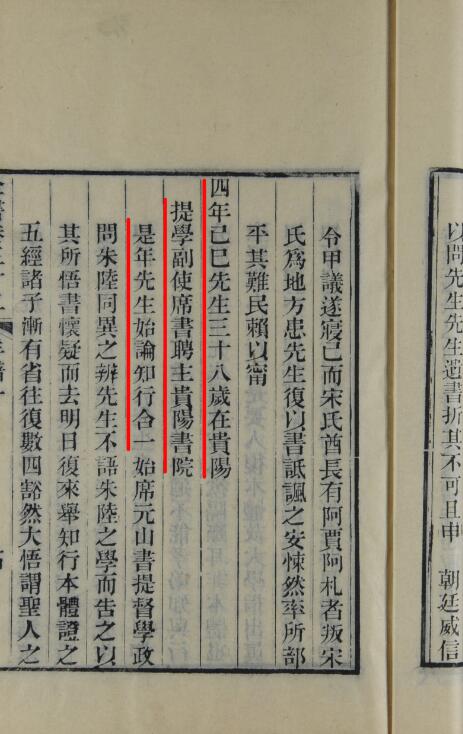 以問先生先生遺書折其不可且申　朝廷威信
令甲議遂寢已而宋氏酋長有阿賈阿札者叛宋
氏爲地方患先生復以書詆諷之安悚然率所部
平其難民賴以甯
四年己巳先生三十八歲在貴陽
提學副使席書聘主貴陽書院
是年先生始論知行合一始席元山書提督學政
問朱陸同異之辨先生不語朱陸之學而告之以
其所悟書懷疑而去明日復來舉知行本體證之
五經諸子漸有省往復數四豁然大悟謂聖人之